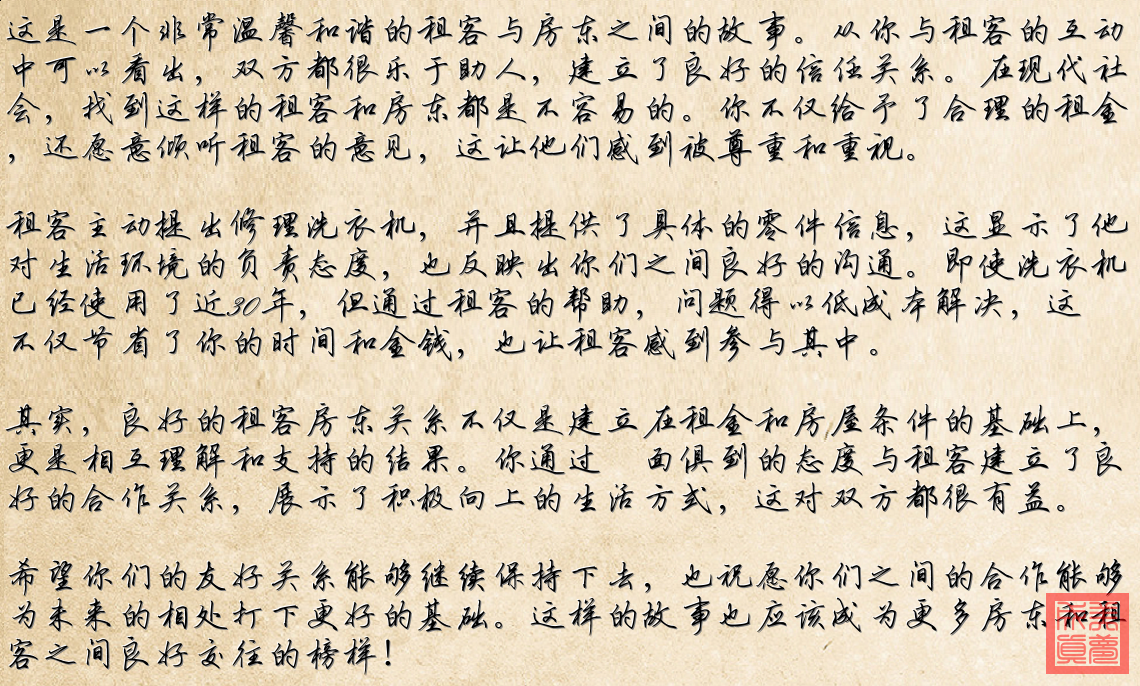 这是一个非常温馨和谐的租客与房东之间的故事。从你与租客的互动
中可以看出，双方都很乐于助人，建立了良好的信任关系。在现代社
会，找到这样的租客和房东都是不容易的。你不仅给予了合理的租金
，还愿意倾听租客的意见，这让他们感到被尊重和重视。
租客主动提出修理洗衣机，并且提供了具体的零件信息，这显示了他
对生活环境的负责态度，也反映出你们之间良好的沟通。即使洗衣机
已经使用了近30年，但通过租客的帮助，问题得以低成本解决，这
不仅节省了你的时间和金钱，也让租客感到参与其中。
其实，良好的租客房东关系不仅是建立在租金和房屋条件的基础上，
更是相互理解和支持的结果。你通过 面俱到的态度与租客建立了良
好的合作关系，展示了积极向上的生活方式，这对双方都很有益。
希望你们的友好关系能够继续保持下去，也祝愿你们之间的合作能够
为未来的相处打下更好的基础。这样的故事也应该成为更多房东和租
客之间良好交往的榜样！